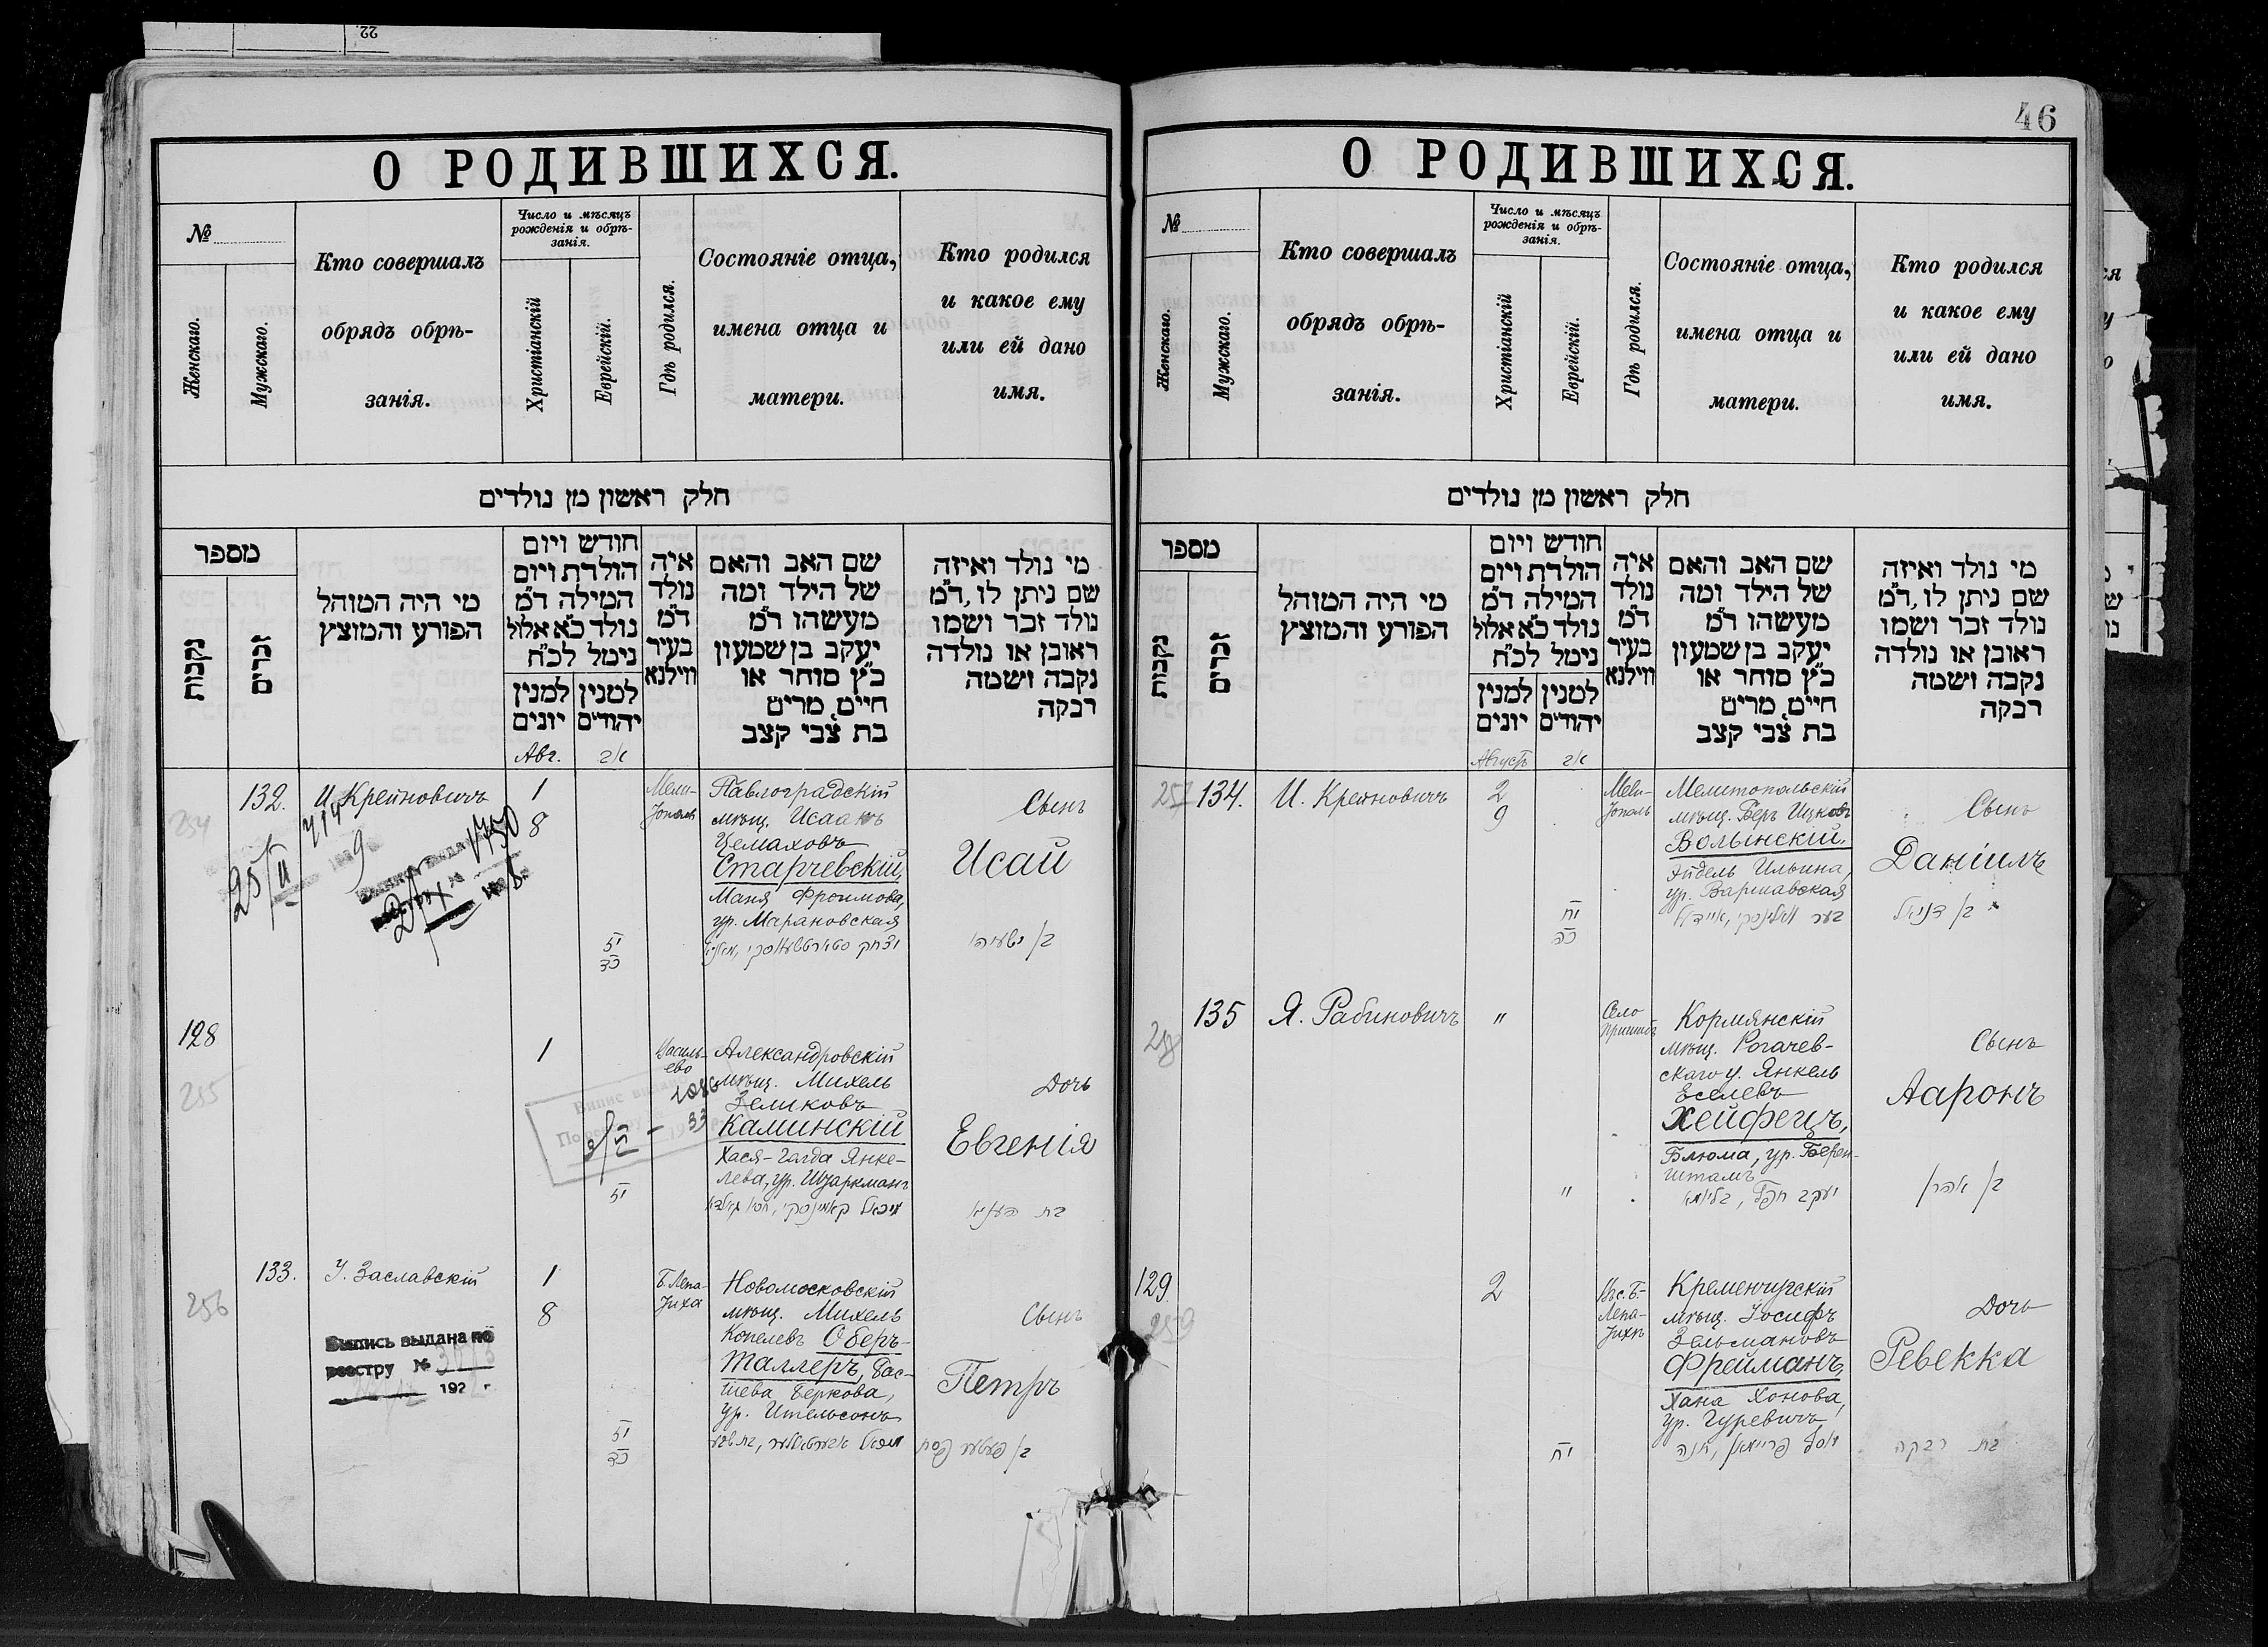 22
О РОДИВШИХСЯ.
№
Женскаго.
Мужскаго.
Кто совершалъ
обрядъ обрѣ-
занія.
Число и мѣсяцъ
рожденія и обрѣ-
занія.
Христіанскій
Еврейскій.
Гдѣ родился.
Состояніе отца,
имена отца и
матери.
Кто родился
и какое ему
или ей дано
имя.
חלק ראשון מן נולדים
מספר
נקבות
זכרים
מי היה המוהל
הפורע והמוצץ
חודש ויום
הולדת ויום
המילה ד״מ
נולד כ״א אלול
נימל לכ״ח
למנין
יונים
למנין
יהודים
איה
נולד
ד״מ
בעיר
ווילנא
שם האב והאם
של הילד ומה
מעשהו ד״מ
יעקב בן שמעון
כ״ץ סוחר או
חיים, מרים
בת צבי קצב
מי נולד ואיזה
שם ניתן לו, ד״מ
נולד זכר ושמו
ראובן או נולדה
נקבה ושמה
רבקה
Авг.
254
132.
И. Крейновичъ
1
8
Мели-
тополь
Павлоградскій
мѣщ. Исаакъ
Цемаховъ
Старчевскій,
Маня Фроимова,
ур. Марановская
Сынъ
Исай
יז
כד
בן ישעיהו
25/II
9
1750
128
255
1
Василь-
ево
Александровскій
мѣщ. Михель
Зеликовъ
Каминскій
Хася-Голда Янке-
лева, ур. Шваркманъ
Дочь
Евгенія
יז
1086
33
256
133.
І. Заславскій
1
8
Б. Лепа-
тиха
Новомосковскій
мѣщ. Михель
Копелевъ Оберъ-
таллеръ, Бас-
шева Беркова,
ур. Ительсонъ
Сынъ
Петръ
יז
כד
Выпись выдана по
реестру №
192 г.
46
О РОДИВШИХСЯ.
№
Женскаго.
Мужскаго.
Кто совершалъ
обрядъ обрѣ-
занія.
Число и мѣсяцъ
рожденія и обрѣ-
занія.
Христіанскій
Еврейскій.
Гдѣ родился.
Состояніе отца,
имена отца и
матери.
Кто родился
и какое ему
или ей дано
имя.
חלק ראשון מן נולדים
מספר
נקבות
זכרים
מי היה המוהל
הפורע והמוצץ
חודש ויום
הולדת ויום
המילה ד״מ
נולד כ״א אלול
נימל לכ״ח
למנין
יונים
למנין
יהודים
איה
נולד
ד״מ
בעיר
ווילנא
שם האב והאם
של הילד ומה
מעשהו ד״מ
יעקב בן שמעון
כ״ץ סוחר או
חיים, מרים
בת צבי קצב
מי נולד ואיזה
שם ניתן לו, ד״מ
נולד זכר ושמו
ראובן או נולדה
נקבה ושמה
רבקה
Августъ
257
134.
И. Крейновичъ
2
9
Мели-
тополь
Мелитопольскій
мѣщ. Беръ Ицковъ
Волынскій,
Эйдель Ильина,
ур. Варшавская
Сынъ
Даніилъ
יח
כה
בן דניאל
258
135
Я. Рабиновичъ
"
Село
Кормянскій
мѣщ. Рогачев-
скаго у. Янкель
Еселевъ
Хейфецъ,
Блюма, ур. Берен-
штамъ
Сынъ
Ааронъ
"
בן אהרן
129
259
2
Б-
Лепа-
тиха
Кременчугскій
мѣщ. Іосифъ
Зельмановъ
Фрейманъ,
Хана Хонова,
ур. Гуревичъ
Дочь
Ревекка
יח
יוסף פריימאן, חנה
בת רבקה